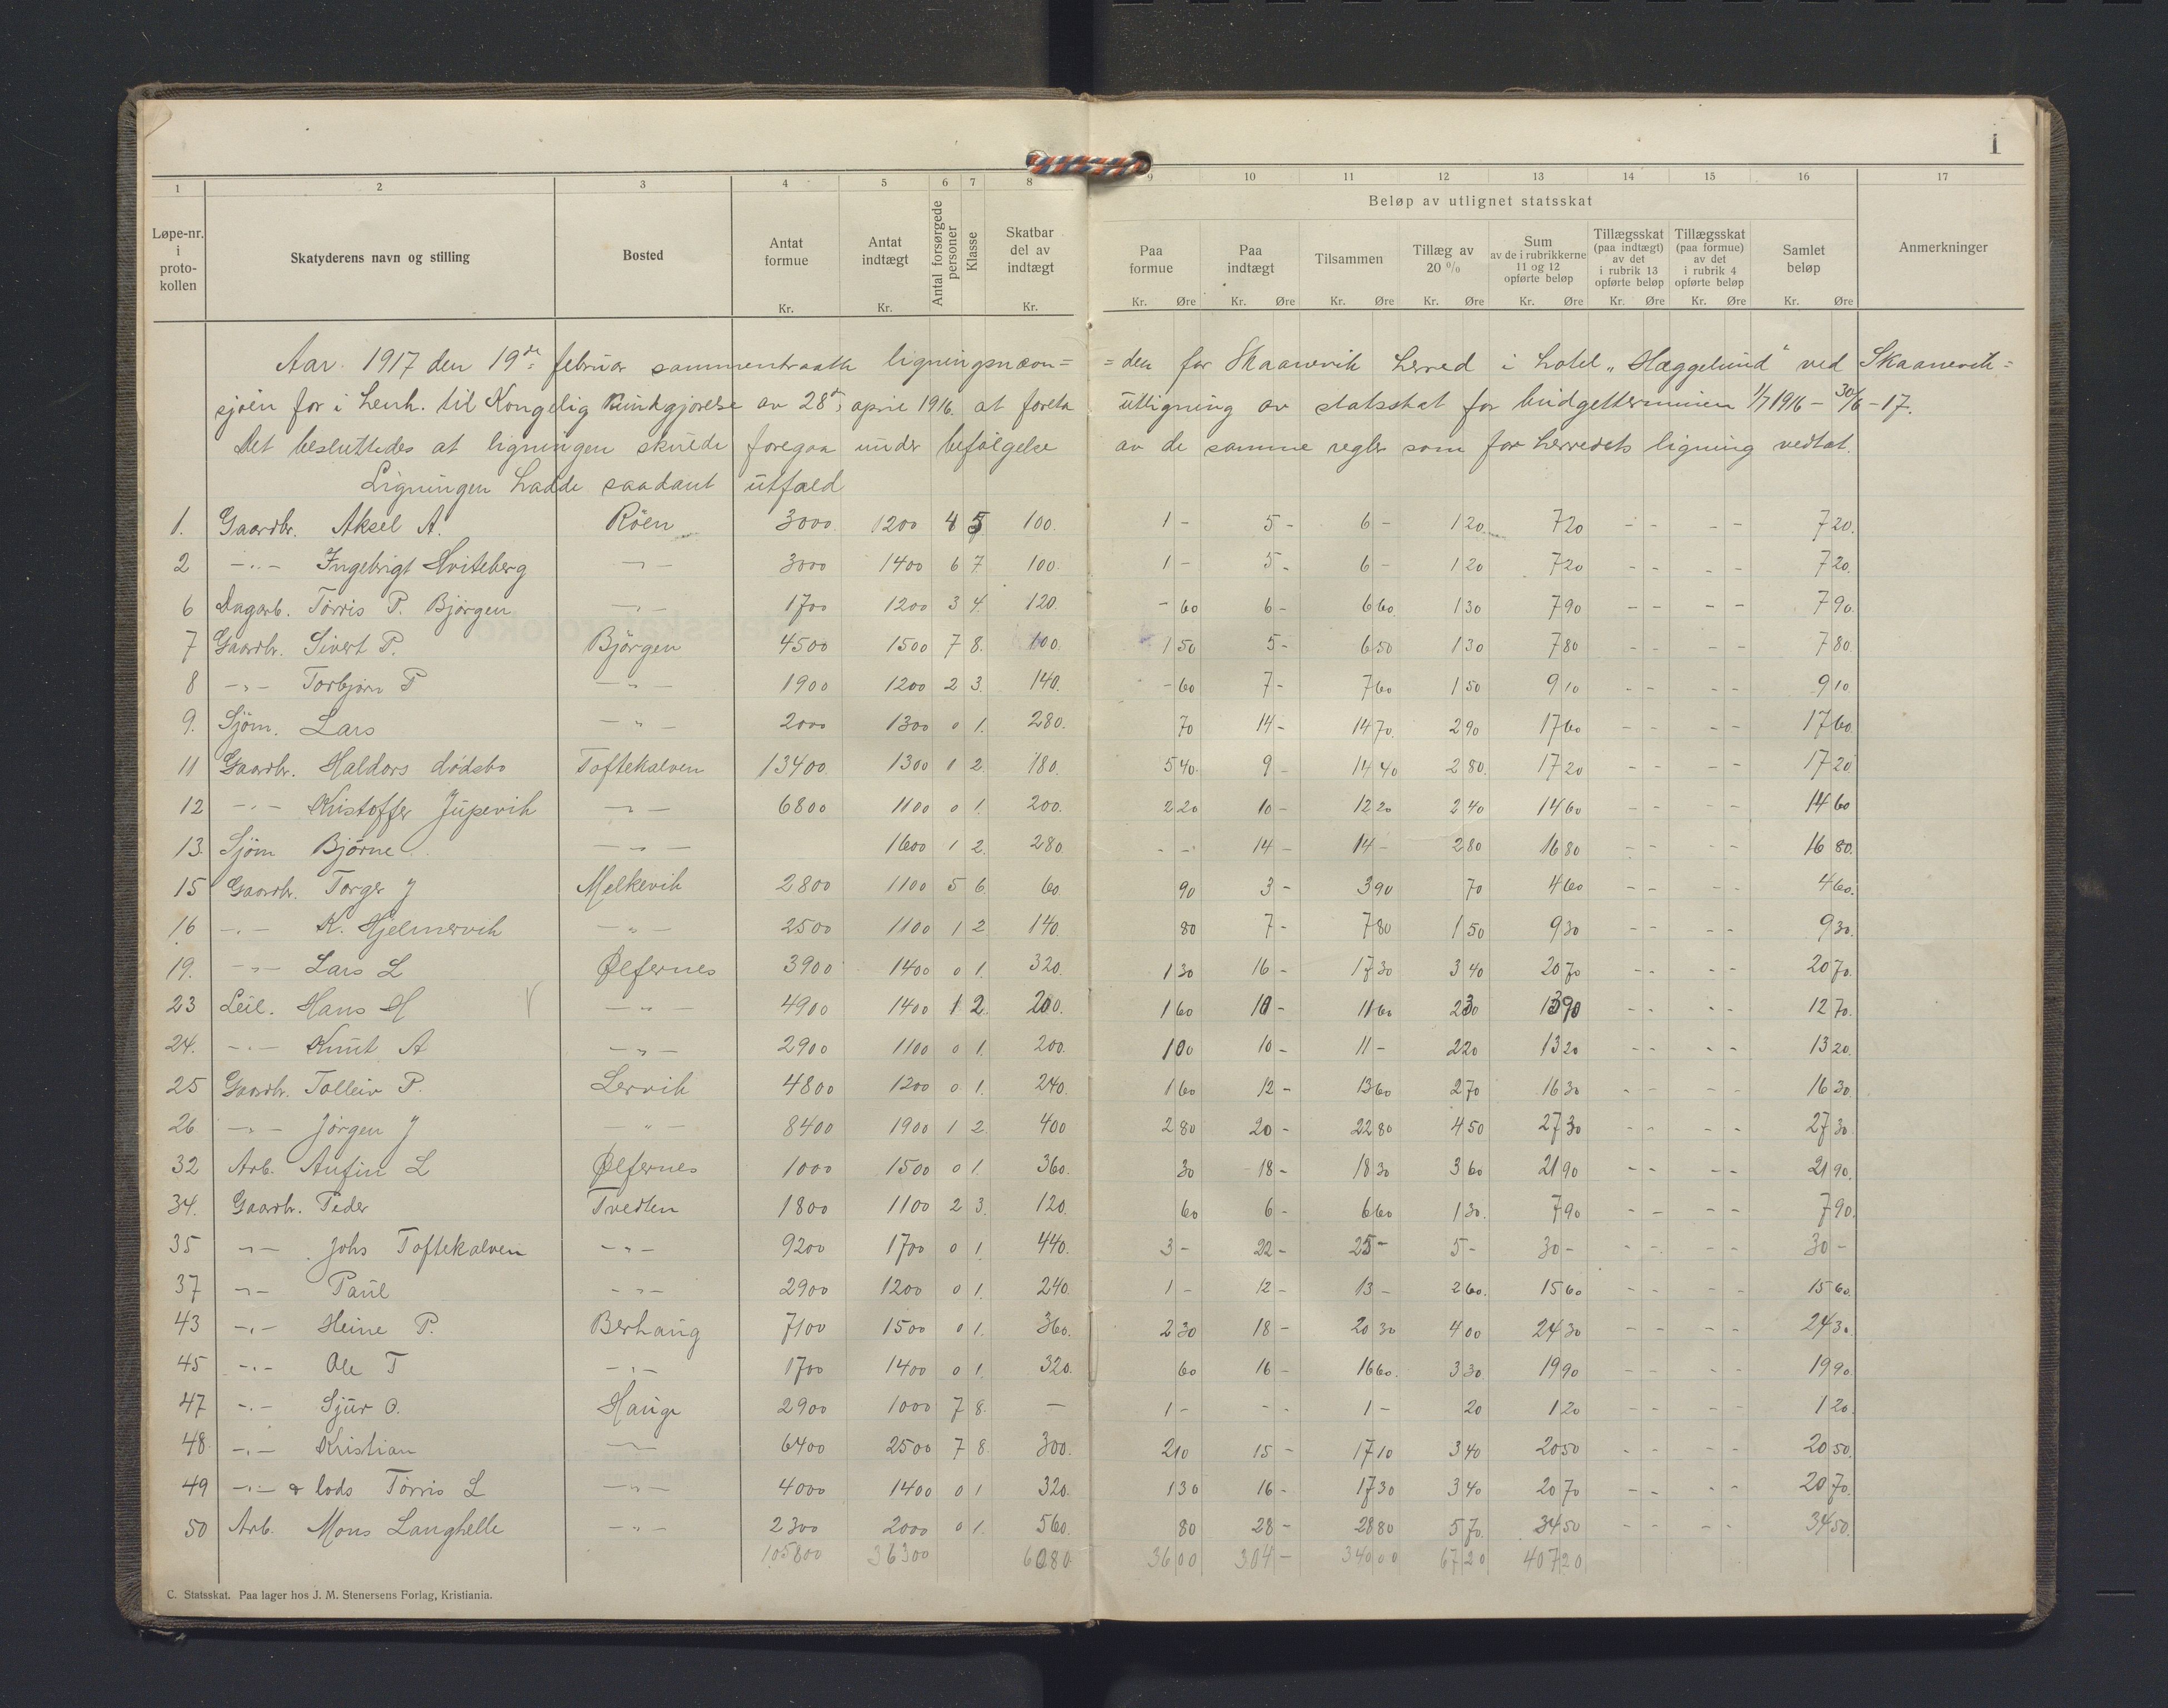 1
1 2 3 4 5 6 7 8 9 10 11 12 13 14 15 16 17
Beløp av utlignet statsskat
Løpe-nr. i proto-kollen | Skatyderens navn og stilling | Bosted | Antat formue Kr. | Antat indtægt Kr. | Antal forsørgede personer | Klasse | Skatbar del av indtægt Kr. | Paa formue Kr. Øre | Paa indtægt Kr. Øre | Tilsammen Kr. Øre | Tillæg av 20 % Kr. Øre | Sum av de i rubrikkerne 11 og 12 opførte beløp Kr. Øre | Tillægsskat (paa indtægt) av det i rubrik 13 opførte beløp Kr. Øre | Tillægsskat (paa formue) av det i rubrik 4 opførte beløp Kr. Øre | Samlet beløp Kr. Øre | Anmerkninger
Aar 1917 den 19de februar sammentraatte ligningsnævn= =den for Skaanevik herred i hotel „Hæggelund" ved Skaanevik=
sjøen for i henh. til Kongelig Kundgjørelse av 28de april 1916 at foreta utligning av statsskat for budgetterminen 1/7 1916 – 30/6 – 17.
Det besluttedes at ligningen skulde foregaa under befølgelse av de samme regler som for herredets ligning vedtat.
Ligningen hadde saadant utfald
1. Gaardbr. Aksel A. Röen 3000 1200 4 5 100. 1 - 5 - 6 - 1 20 7 20 - - - - 7 20.
2 -"- Ingebrigt Hviteberg -"- 3000 1400 6 7 100. 1 - 5 - 6 - 1 20 7 20 - - - - 7 20.
6 Dagarb. Törris P. Bjørgen -"- 1700 1200 3 4. 120. - 60 6 - 6 60 1 30 7 90 - - - - 7 90.
7 Gaardbr. Sivert P. Björgen 4500 1500 7 8. 100. 1 50 5 - 6 50 1 30 7 80 - - - - 7 80.
8 -"- Torbjørn P -"- 1900 1200 2 3. 140. - 60 7 - 7 60 1 50 9 10 - - - - 9 10.
9. Sjöm. Lars -"- 2000 1300 0 1. 280. 70 14 - 14 70 2 90 17 60 - - - - 17 60.
11 Gaardbr. Haldors dödsbo Toftekalven 13400 1300 1 2. 180. 5 40 9 - 14 40 2 80 17 20 - - - - 17 20
12 -"- Kristoffer Jupevik -"- 6800 1100 0 1. 200. 2 20 10 - 12 20 2 40 14 60 - - - - 14 60
13. Sjöm Bjørne -"- 1600 1 2. 280 - - 14 - 14 - 2 80 16 80 - - - - 16 80.
15 Gaardbr. Torger J Melkevik 2800 1100 5 6. 60. 90 3 - 3 90 70 4 60 - - - - 4 60.
16 -"- K. Hjelmervik -"- 2500 1100 1 2 140. 80 7 - 7 80 1 50 9 30 - - - - 9 30.
19. -"- Lars L Ølfernes 3900 1400 0 1. 320. 1 30 16 - 17 30 3 40 20 70 - - - - 20 70.
23 Leil. Hans H -"- 4900 1400 1 2. 200. 1 60 10 - 11 60 2 30 13 90 - - - - 12 70.
24. -"- Knut A -"- 2900 1100 0 1. 200. 1 00 10 - 11 - 2 20 13 20 - - - - 13 20.
25 Gaardbr. Tolleiv P. Lervik 4800 1200 0 1. 240. 1 60 12 - 13 60 2 70 16 30 - - - - 16 30.
26 -"- Jörgen J -"- 8400 1900 1 2. 400 2 80 20 - 22 80 4 50 27 30 - - - - 27 30
32 Arb. Anfin L Ølfernes 1000 1500 0 1. 360. 30 18 - 18 30 3 60 21 90 - - - - 21 90.
34. Gaardbr. Peder Tvedten 1800 1100 2 3. 120. 60 6 - 6 60 1 30. 7 90 - - - - 7 90.
35 -"- Johs Toftekalven -"- 9200 1700 0 1. 440. 3 - 22 - 25 - 5 - 30 - - - - - 30 -
37 -"- Paul -"- 2900 1200 0 1. 240. 1 - 12 - 13 - 2 60. 15 60 - - - - 15 60.
43 -"- Heine P. Berhaug 7100 1500 0 1. 360. 2 30 18 - 20 30 4 00 24 30 - - - - 24 30.
45 -"- Ole T -"- 1700 1400 0 1. 320. 60 16 - 16 60. 3 30 19 90 - - - - 19 90.
47 -"- Sjur O. Hauge 2900 1000 7 8. — 1 - - - 1 - 20 1 20 - - - - 1 20.
48. -"- Kristian -"- 6400 2500 7 8. 300. 2 10 15 - 17 10 3 40 20 50 - - - - 20 50.
49 -"- & lods Törris L -"- 4000 1400 0 1 320. 1 30 16 - 17 30 3 40 20 70 - - - - 20 70.
50 Arb. Mons Langhelle -"- 2300 2000 0 1. 560. 80 28 - 28 80 5 70. 34 50 - - - - 34 50.
105800 36300 6080 36 00 304 - 340 00 67 20 407 20
C. Statsskat. Paa lager hos J. M. Stenersens Forlag, Kristiania.